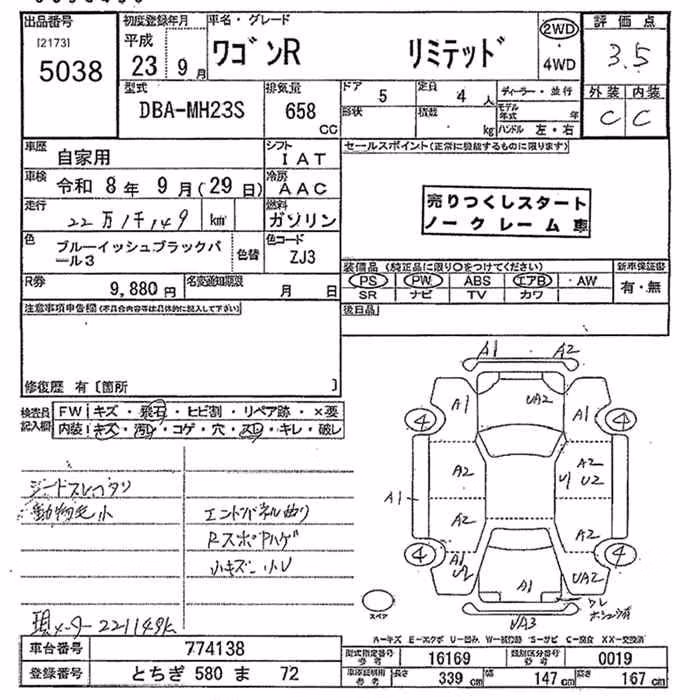 出品番号 初度登録年月 車名・グレード 評価点
[2173] 平成 2WD
5038 23 9月 ワゴンR リミテッド 4WD 3.5
型式 排気量 ドア 定員 ディーラー・並行 外装 内装
DBA-MH23S 658 CC 5 4人 モデル年式 年 C C
形状 積載 kg ハンドル 左・右
車歴 自家用 シフト IAT セールスポイント(正常に機能するものに限ります)
車検 令和 8年 9月(29日) 冷房 AAC
売りつくしスタート
ノークレーム車
走行 22万1千149 km 燃料 ガソリン
色 ブルーイッシュブラックパール3 色替 色コード ZJ3
装備品(純正品に限り○をつけてください) 新車保証書
PS PW ABS エアB ・AW 有・無
SR ナビ TV カワ
R券 9,880円 名変通知期限 月 日
注意事項申告欄(不具合内容等は具体的に記入して下さい) 後日品
修復歴 有〔箇所 〕
検査員記入欄 FW キズ・飛石・ヒビ割・リペア跡・×要
内装 キズ・汚レ・コゲ・穴・スレ・キレ・破レ
A1 A2
A1 UA2 A1
4 4
A2 U1 A2 U2
A1
A2 A2
4 4
A1 U2 A1 UA2
UA3
シートスレヘタリ
動物毛小
エンドパネル曲り
Rスポヤハゲ
小キズ
スペア
A-キズ E-エクボ U-凹み W-補修跡 S-サビ C-腐食 XX-交換済
現メーター221149k
車台番号 774138 型式指定番号 参考 16169 類別区分番号 参考 0019
登録番号 とちぎ 580 ま 72 車検証積用 参考 長さ 339cm 幅 147cm 高さ 167cm